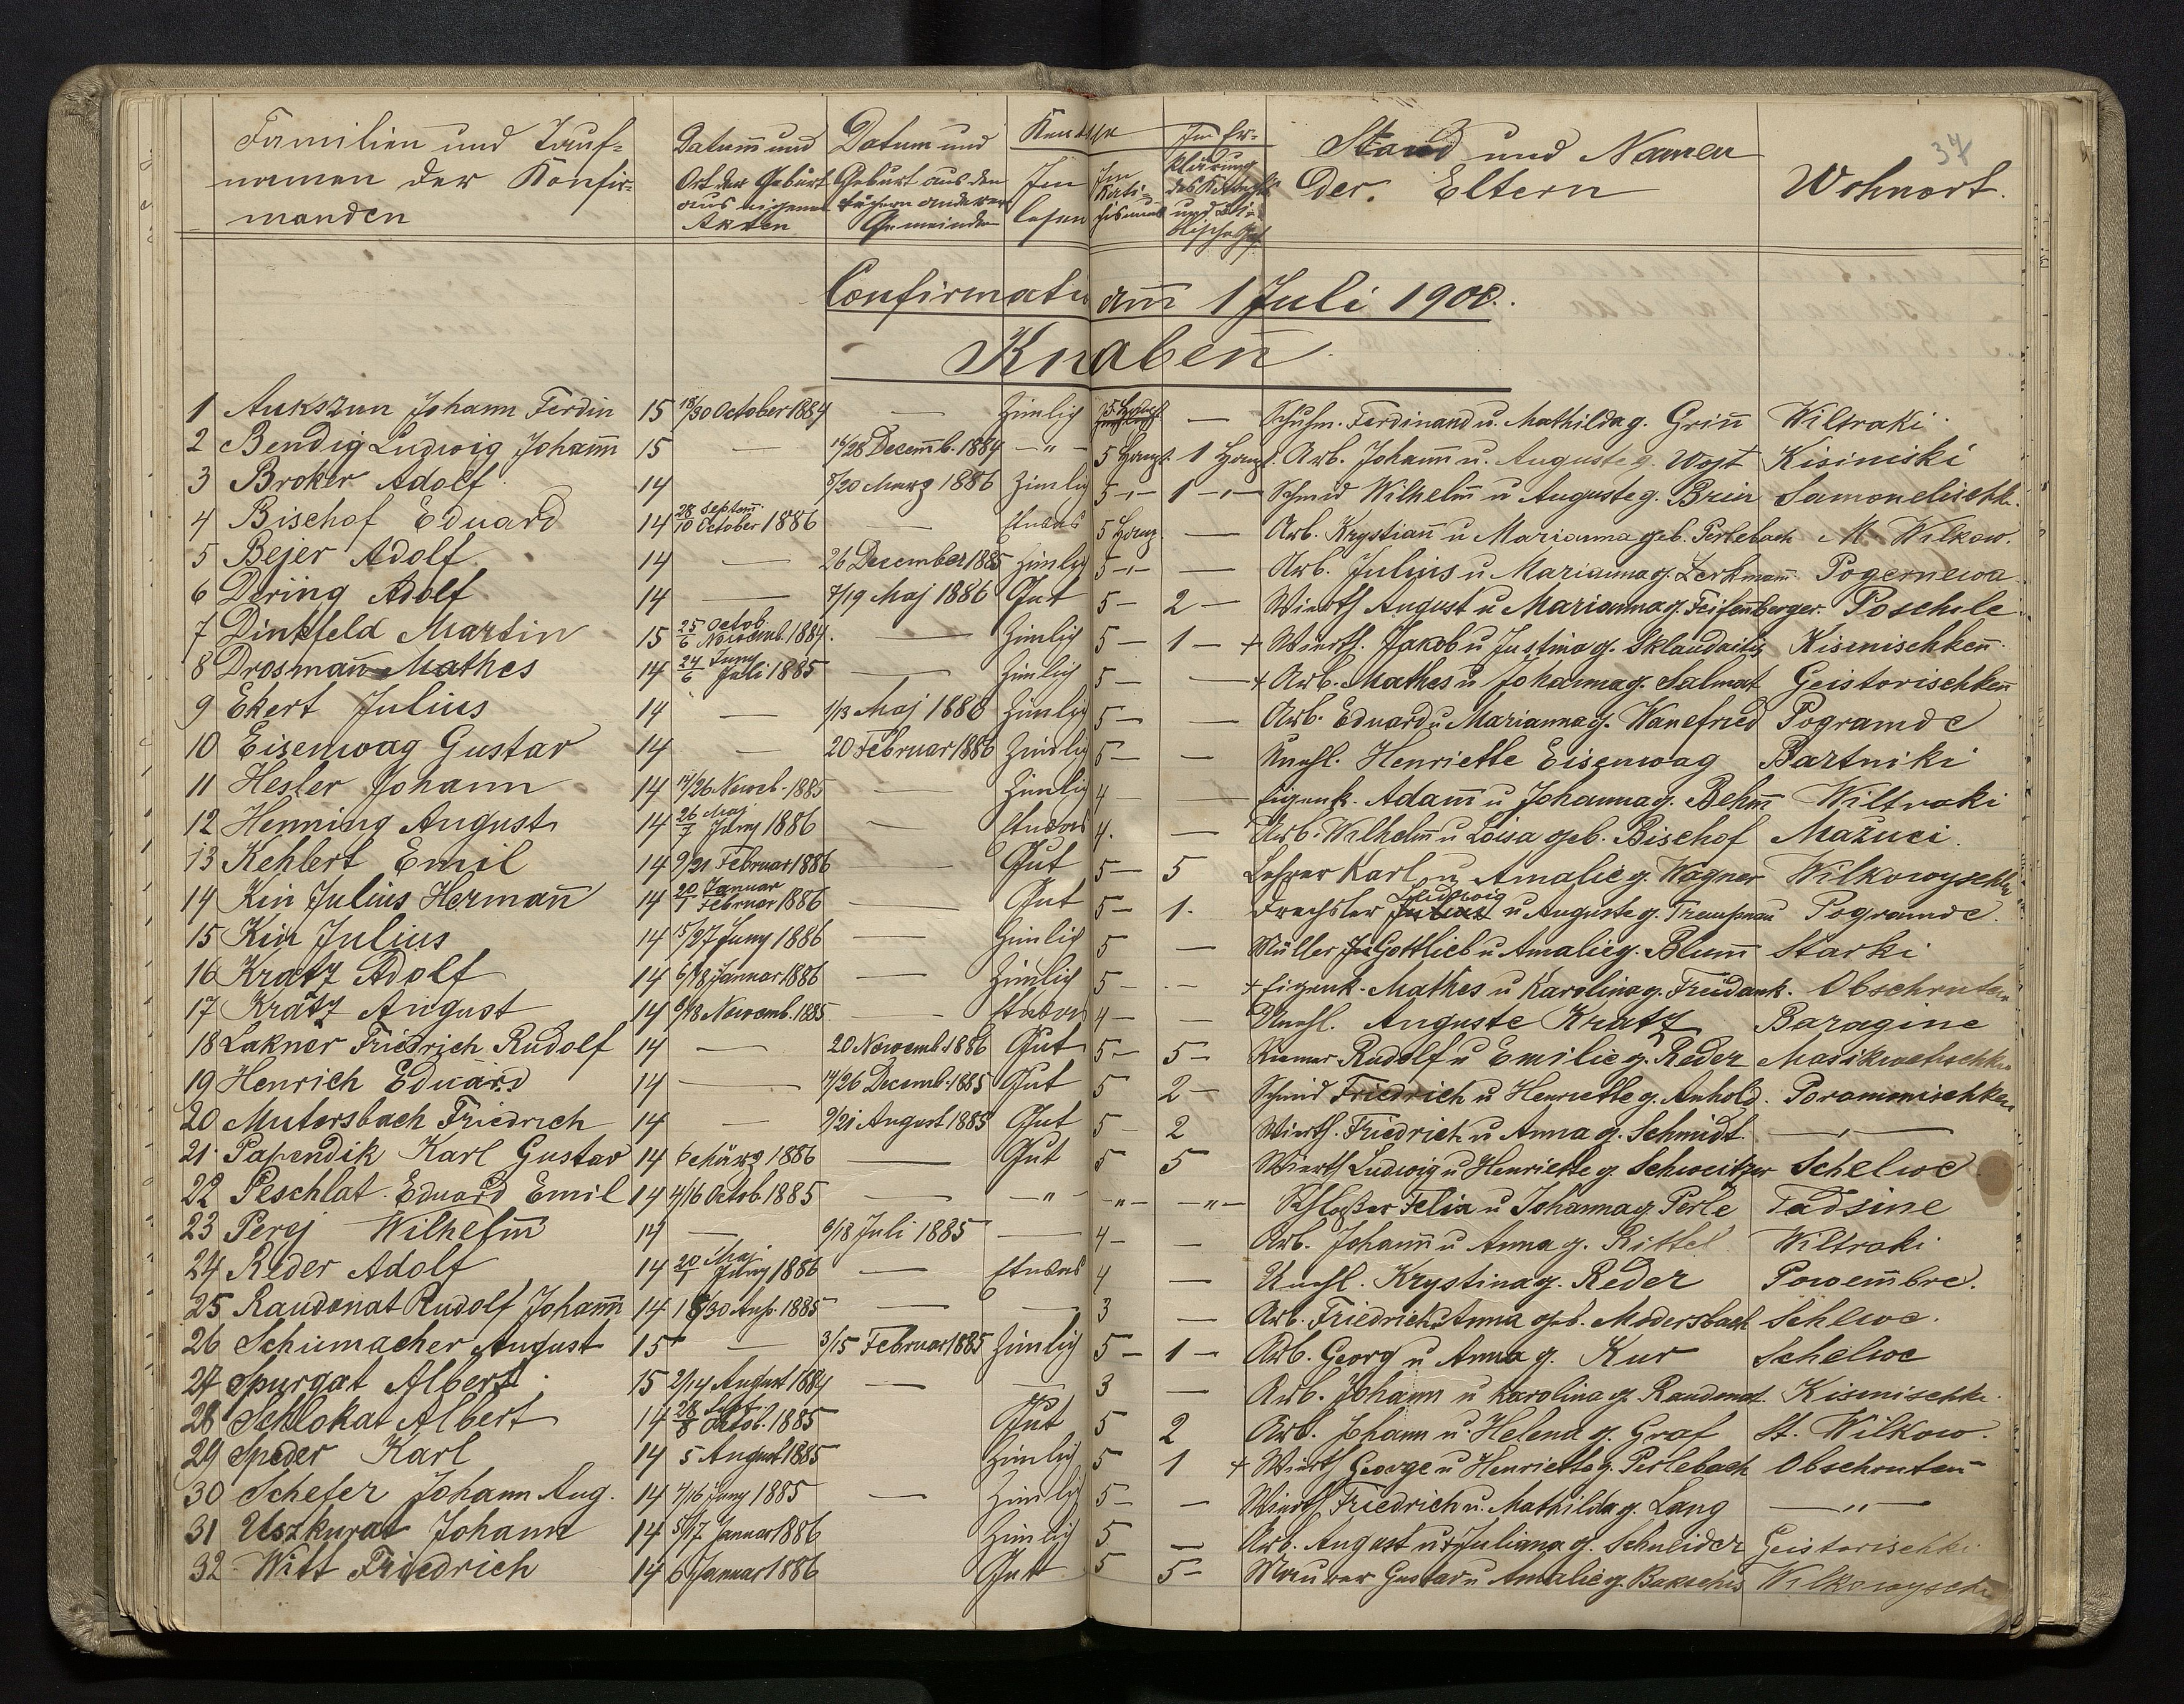 37
Familien und Tauf-
namen der Konfir-
manden
Datum und
Ort der Geburt
aus eigenen
Akten
Datum und
Geburt aus den
büchern anderer
Gemeinden
Im
lesen
Im
Im Er-
klärung
und
Stand und Namen
der Eltern
Wohnort.
Confirmati am 1 Juli 1900.
Knaben
1 Aukszun Johann Ferdin 15 18/30 October 1884 — Zimlich 5 Haupt — Schuhm. Ferdinand u. Mathilda g. Grin̄ Wiltraki
2 Bendig Ludwig Johan̄ 15 — 16/28 Decemb. 1884 — " — 5 Haupt. 1 Haupt. Arb. Johan̄ u. Auguste g. Wojt Kisiniski
3 Broker Adolf 14 8/20 Marz 1886 Zimlich 5 -"- 1 -"- Schmid Wilhelm u Auguste g. Brin Samonelischk.
4 Bischof Eduard 14 28 Septem. 10 October 1886 — Etwas 5 Haup. — Arb. Krystian̄ u Marianna geb. Perlebach M. Wilkow.
5 Bejer Adolf 14 — 26 December 1885 Zimlich 5 -"- — Arb. Julius u Marianna g. Zerkman̄. Pogernewa
6 Dering Adolf 14 — 7/19 Maj 1886 Gut 5 — 2 — Wirth August u Marianna g. Feifenberger. Poschele
7 Dinkfeld Martin 15 25 Octob. 6 Novemb. 1884. — Zimlich 5 — 1 — + Wirth. Jakob u Justina g. Sklaudaitis Kisinischken̄.
8 Drosman̄ Mathes 14 24 Juny 6 Juli 1885 — Zimlich 5 — — + Arb. Mathes u Johanna g. Salmat Geistorischken̄
9 Ekert Julius 14 — 1/13 Maj 1886 Zimlich 5 — — Arb. Eduard u Marianna g. Wanefried Pogramde
10 Eisenwag Gustav 14 — 20 Februar 1886 Zimlich 5 — — Unehl. Henriette Eisenwag Bartniki
11 Hesler Johann 14 14/26 Novb. 1885 — Zimlich 4 — — Eigent. Adam u Johanna g. Behm̄ Wiltraki
12 Henning August 14 26 Maj 7 Juny 1886 — Etwas 4. — Arb. Wilhelm u Loisa geb. Bischof Mažuci.
13 Kehlert Emil 14 9/21 Februar 1886 — Gut 5 — 5 Lehrer Karl u Amalie g. Wagner Wilkowyschki
14 Kin Julius Herman̄ 14 20 Januar 1 Februar 1886 — Gut 5 — 1. Drechsler Ludwig u Auguste g. Trempnau Pogramde.
15 Kin Julius 14 15/27 Juny 1886 — Zimlich 5 — Müller Gottlieb u Amalie g. Blum̄ Starki
16 Kratz Adolf 14 6/18 Januar 1886 — Zimlich 5 — — + Eigent. Mathes u Karolina g. Freidank. Obschruten
17 Kratz August 14 6/18 Novemb. 1885 — Etwas 4 — — Unehl. Auguste Kratz Baragine
18 Lakner Friedrich Rudolf 14 — 20 Novemb. 1886 Gut 5 — 5 — Riemer Rudolf u Emilie g. Reder
19 Henrich Eduard 14 — 14/26 Decemb. 1885 Gut 5 2 — Schmid Friedrich u Henriette g. Anhold. Poramonischken
20 Mutersbach Friedrich 14 — 9/21 August 1885 Gut 5 — 2 Wirth. Friedrich u Anna g. Schmidt. — " —
21. Papendik Karl Gustav 14 6 März 1886 — Gut 5 5 Wirth Ludwig u Henriette g. Schweitzer Schelwe
22 Peschlat Eduard Emil 14 4/16 Octob. 1885 — — " — — " — — " — Schloßer Felix u Johanna g. Perle Tadsine
23 Perej Wilhelm 14 — 6/18 Juli 1885 — 4 — — Arb. Johan̄ u Anna g. Kittel Wiltraki
24 Reder Adolf 14 20 Maj 1 Juny 1886 — Etwas 4 — Unehl. Krystina g. Reder Powembre.
25 Raudonat Rudolf Johan̄ 14 18/30 Aug. 1885 — — 3 — Arb. Friedrich u Anna geb. Modersbach Schlwe.
26 Schumacher August 15 — 3/15 Februar 1885 Zimlich 5 — 1 — Arb. Georg u Anna g. Kur Schelwe
27 Spurgat Albert 15 2/14 August 1884 — — 3 — Arb. Johann u Karolina g. Raudonat. Kisinischke.
28 Schlokat Albert 14 28 Sept. 8 Octob. 1885 Gut 5 2 Arb. Johann u. Helena g. Graf St. Wilkow.
29 Speder Karl 14 5 August 1885 Zimlich 5 1 + Wirth George u Henriette g. Perlebach Obschruten
30 Schefer Johann Aug. 14 4/16 Juny 1885 — Zimlich 5 — — Wirth Friedrich u. Mathilda g. Lang — " —
31 Uszkurat Johann 14 5/17 Januar 1886 Zimlich 5 — Arb. August u + Juliana g. Schneider Geistorischki
32 Witt Friedrich 14 6 Januar 1886 Gut 5 5 — Maurer Gustav u Amalie g. Bakschis Wilkowyschki